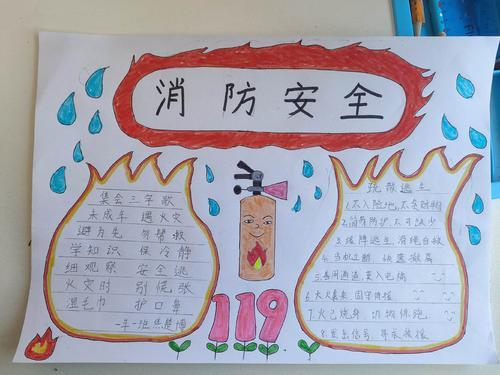 消防安全
集会三字歌
未成年 遇火灾
避为先 勿帮救
学知识 保冷静
细观察 安全逃
火灾时 别慌张
湿毛巾 护口鼻
一年一班
119
逃生
1.不入险地,不贪财物
2.简易防护,不可缺少
3.缓降逃生,滑绳自救
4.当机立断 快速撤离
5.善用通道,莫入电梯
6.大火袭来,固守待援
7.火已烧身,切勿惊跑
8.发出信号,寻求救援